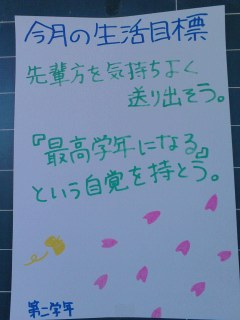 今月の生活目標
先輩方を気持ちよく
送り出そう。
『最高学年になる』
という自覚を持とう。
第二学年